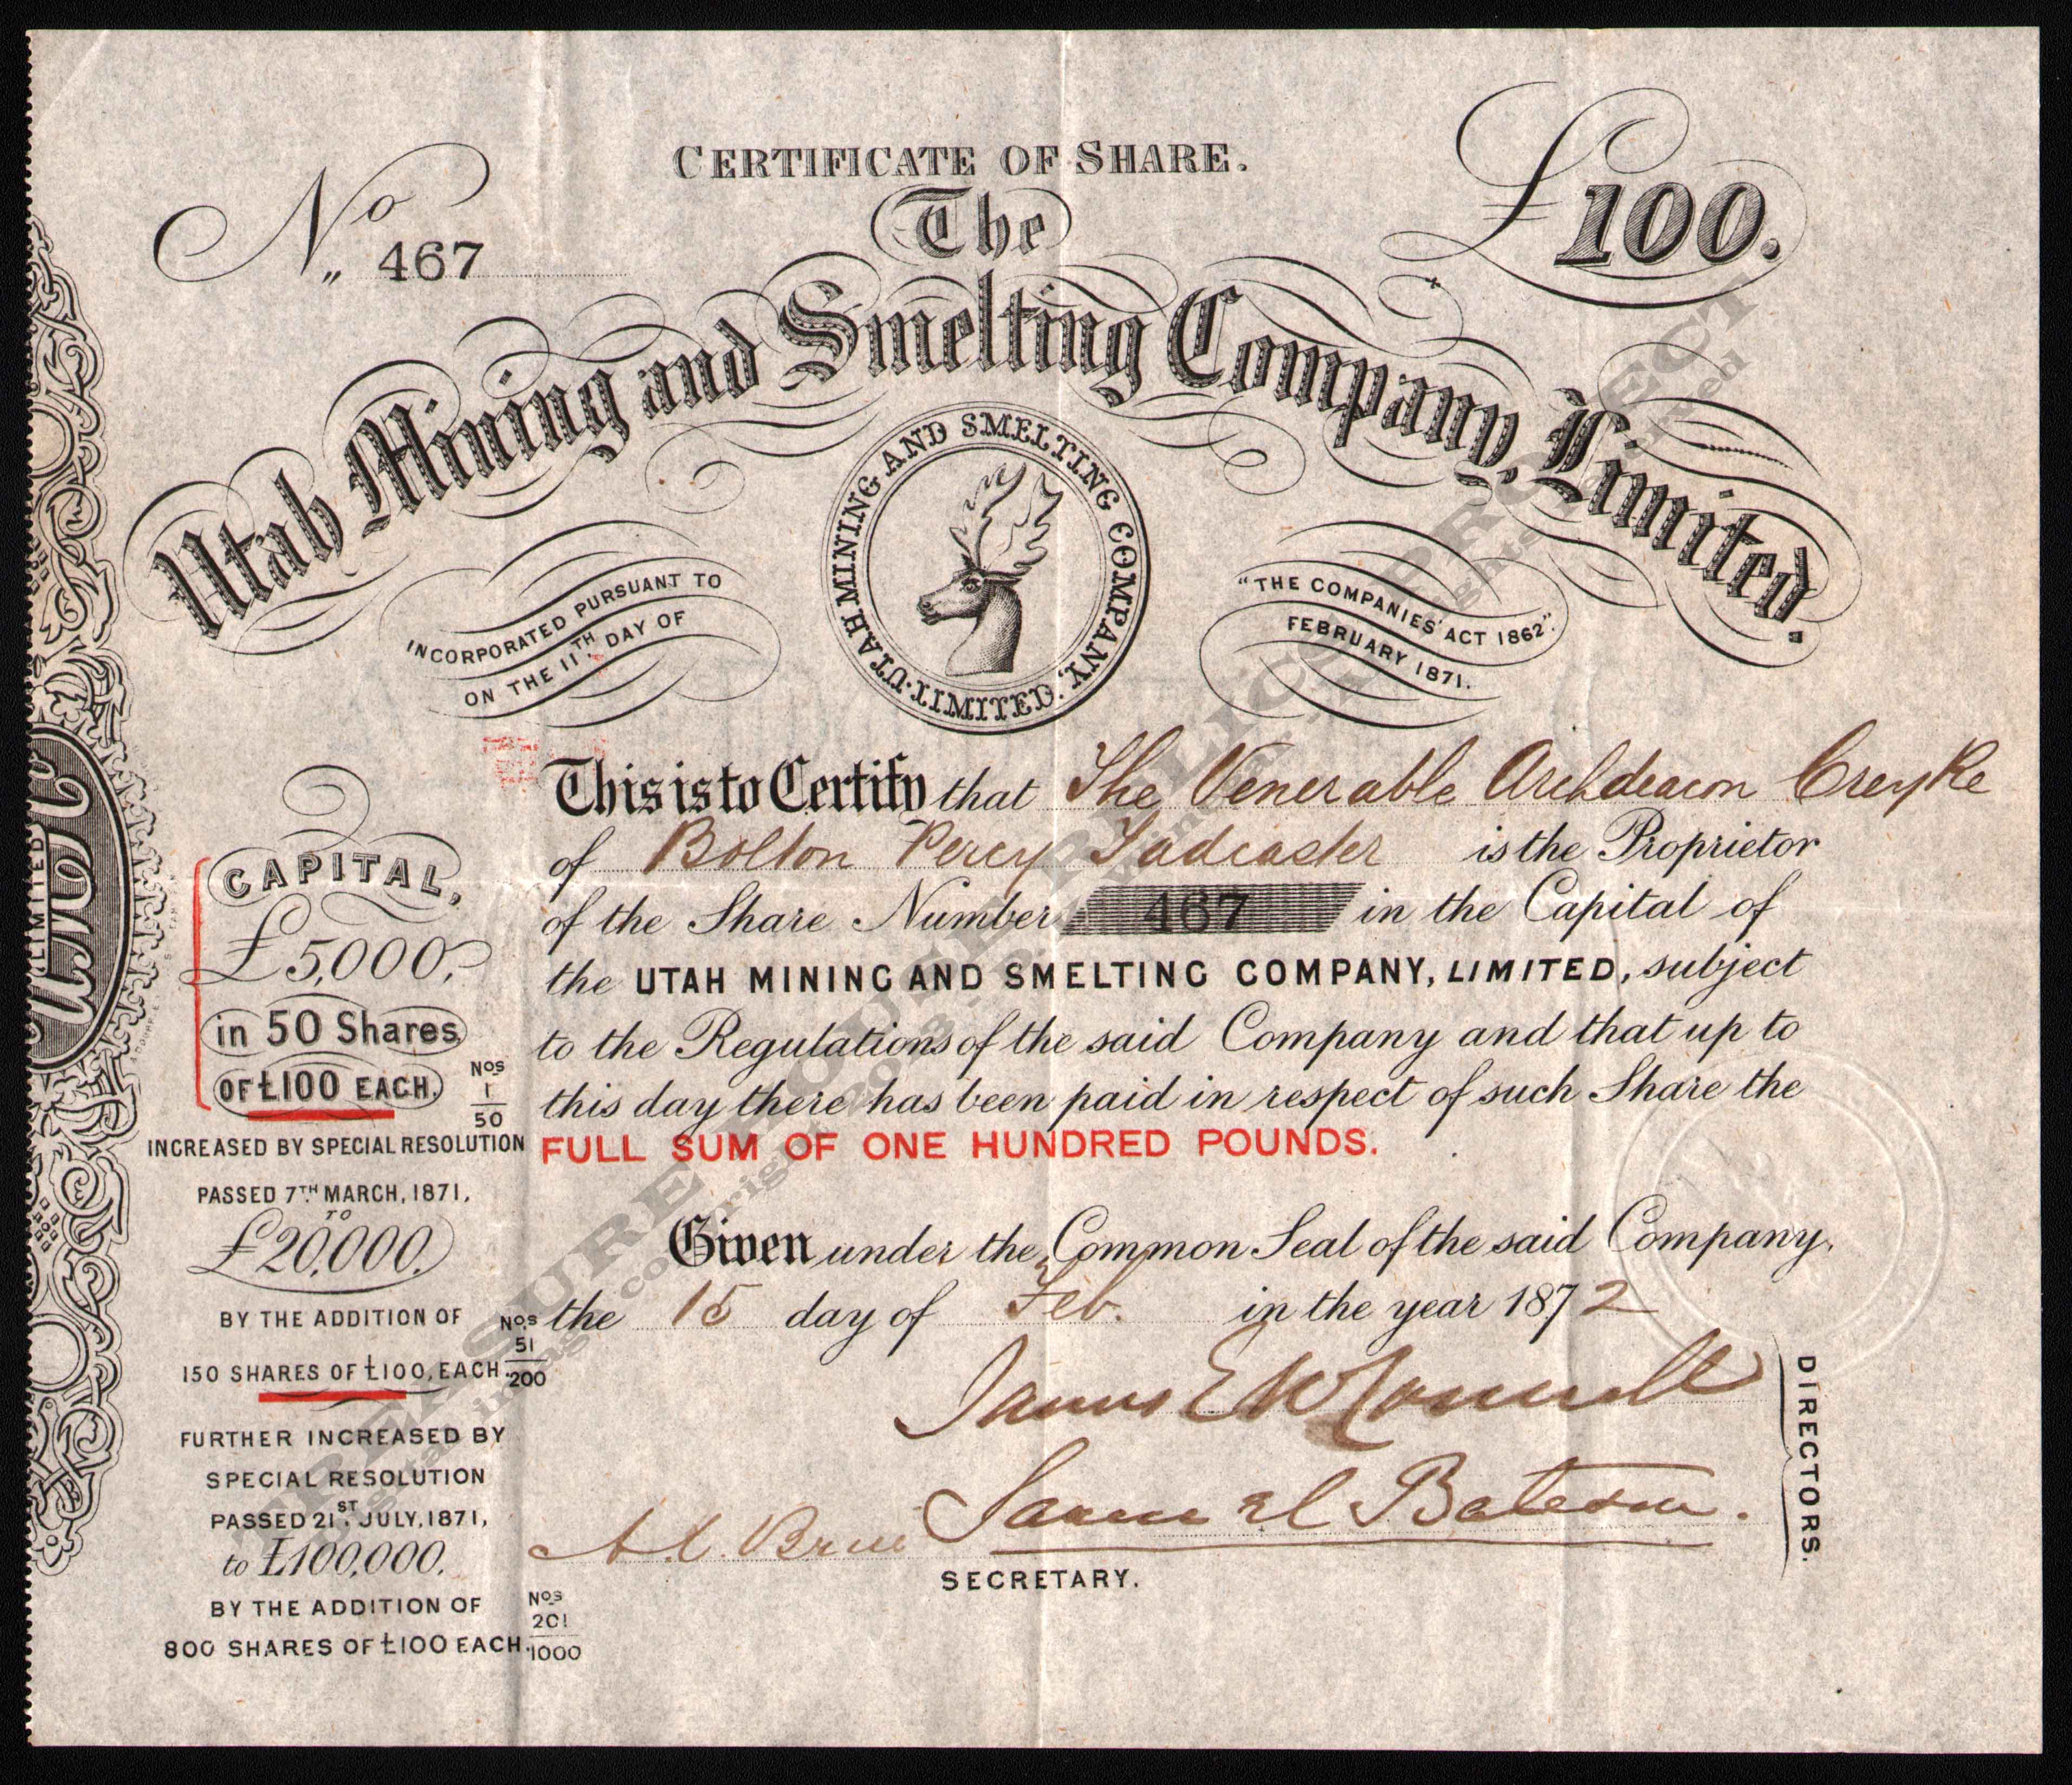 CERTIFICATE OF SHARE.
No 467
£100.
The
Utah Mining and Smelting Company, Limited.
UTAH MINING AND SMELTING COMPANY, LIMITED.
INCORPORATED PURSUANT TO "THE COMPANIES' ACT 1862".
ON THE 11TH DAY OF FEBRUARY 1871.
This is to Certify that The Venerable Archdeacon Creyke
of Bolton Percy Tadcaster is the Proprietor
of the Share Number 467 in the Capital of
the UTAH MINING AND SMELTING COMPANY, LIMITED, subject
to the Regulations of the said Company and that up to
this day there has been paid in respect of such Share the
FULL SUM OF ONE HUNDRED POUNDS.
Given under the Common Seal of the said Company,
the 15 day of Feb. in the year 1872
James E McConnell
Samuel Bateson.
DIRECTORS.
SECRETARY.
CAPITAL,
£5,000,
in 50 Shares
OF £100 EACH.
Nos 1/50
INCREASED BY SPECIAL RESOLUTION
PASSED 7TH MARCH, 1871,
TO
£20,000,
BY THE ADDITION OF
150 SHARES OF £100, EACH.
Nos 51/200
FURTHER INCREASED BY
SPECIAL RESOLUTION
PASSED 21ST JULY, 1871,
to £100,000.
BY THE ADDITION OF
800 SHARES OF £100 EACH.
Nos 201/1000
LIMITED